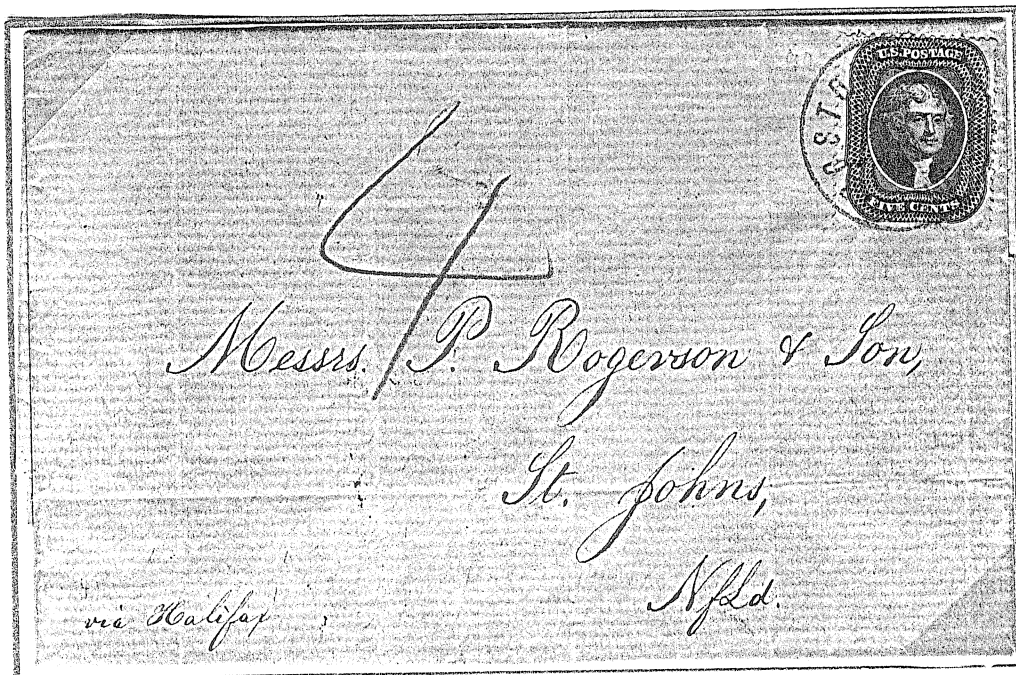 U.S. POSTAGE
FIVE CENTS
4
Messrs. P. Rogerson & Son,
St. Johns,
NfLd.
via Halifax